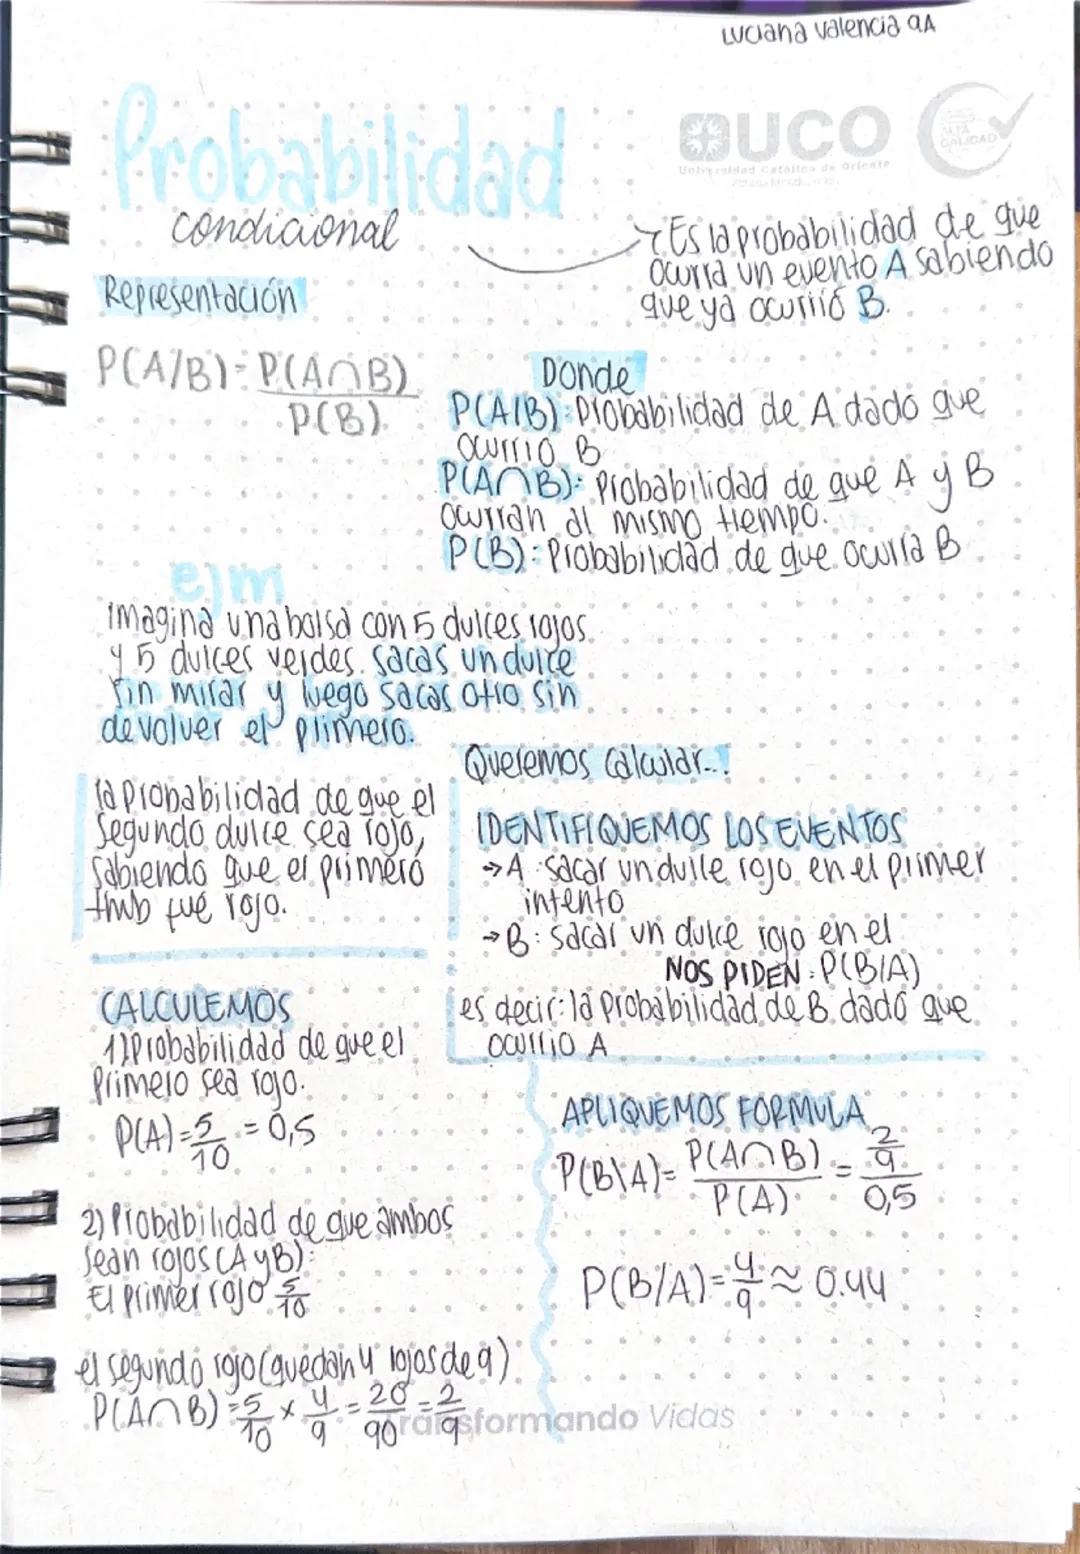 Luciana Valencia 9A
Probabilidad
condicional
UCO
Universidad Católica de Oriente
ALTA
CALIDAD
Es la probabilidad de que
ocurra un evento A sabiendo
que ya ocurrió B.
Representación
P(A/B)= P(A∩B)
P(B)
Donde
P(A|B): Probabilidad de A dado que
ocurrio B
P(A∩B): Probabilidad de que A y B
ocurran al mismo tiempo.
P(B): Probabilidad de que ocurra B
ejm
imagina una bolsa con 5 dulces rojos
y 5 dulces verdes. sacas un dulce
sin mirar y luego sacas otro sin
devolver el primero.
Queremos calcular...
la probabilidad de que el
segundo dulce sea rojo,
sabiendo que el primero
fué rojo.
IDENTIFIQUEMOS LOS EVENTOS
→A: sacar un dulce rojo en el primer
intento
→B: sacar un dulce rojo en el
NOS PIDEN: P(B/A)
es decir: la probabilidad de B dado que
ocurrio A
CALCULEMOS
1) Probabilidad de que el
primero sea rojo.
P(A)=5/10=0,5
2) Probabilidad de que ambos
sean rojos (A y B):
El primer rojo 5/10
el segundo rojo (quedan 4 rojos de 9)
P(A∩B)=5/10 x 4/9=20/90=2/9
APLIQUEMOS FORMULA
P(B\A)= P(A∩B) = 2/9
P(A) 0,5
P(B/A)=4/9≈0.44
Transformando Vidas